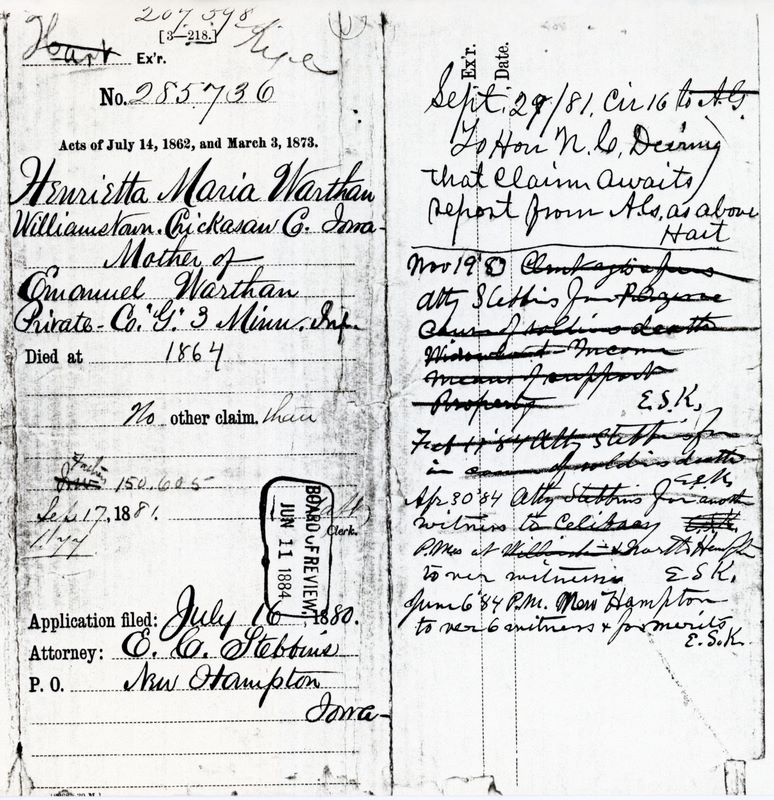 207,398
[3—218.]
Hart Ex'r.
No. 285,736
Acts of July 14, 1862, and March 3, 1873.
Henrietta Maria Warthan
Williamstown. Chickasaw Co. Iowa-
Mother of
Emanuel Warthan
Private- Co. "G." 3 Minn. Inf.
Died at 1864
No other claim. than
Father
150.605
Sep. 17, 1881.
Clerk.
BOARD OF REVIEW.
JUN 11 1884
Application filed: July 16, 1880.
Attorney: E. C. Stebbins
P. O. New Hampton
Iowa-
Ex'r.
Date.
Sept. 29/81. Cir 16 to A.G.
To Hon N. C. Deering
that claim awaits
report from A.G. as above
Hart
Nov 19 83
Atty Stebbins for
cause of soldiers death
Widowhood Income
means of support
Property E.S.K.
Feb 11 '84 Atty Stebbins for
in cause of soldiers death
E.S.K.
Apr 30 '84 Atty Stebbins for another
witness to Celibacy E.S.K.
P.Mas at & North Hampton
to ver witnesses E.S.K.
June 6 '84 P.M. New Hampton
to ver 6 witness & for merits
E.S.K.